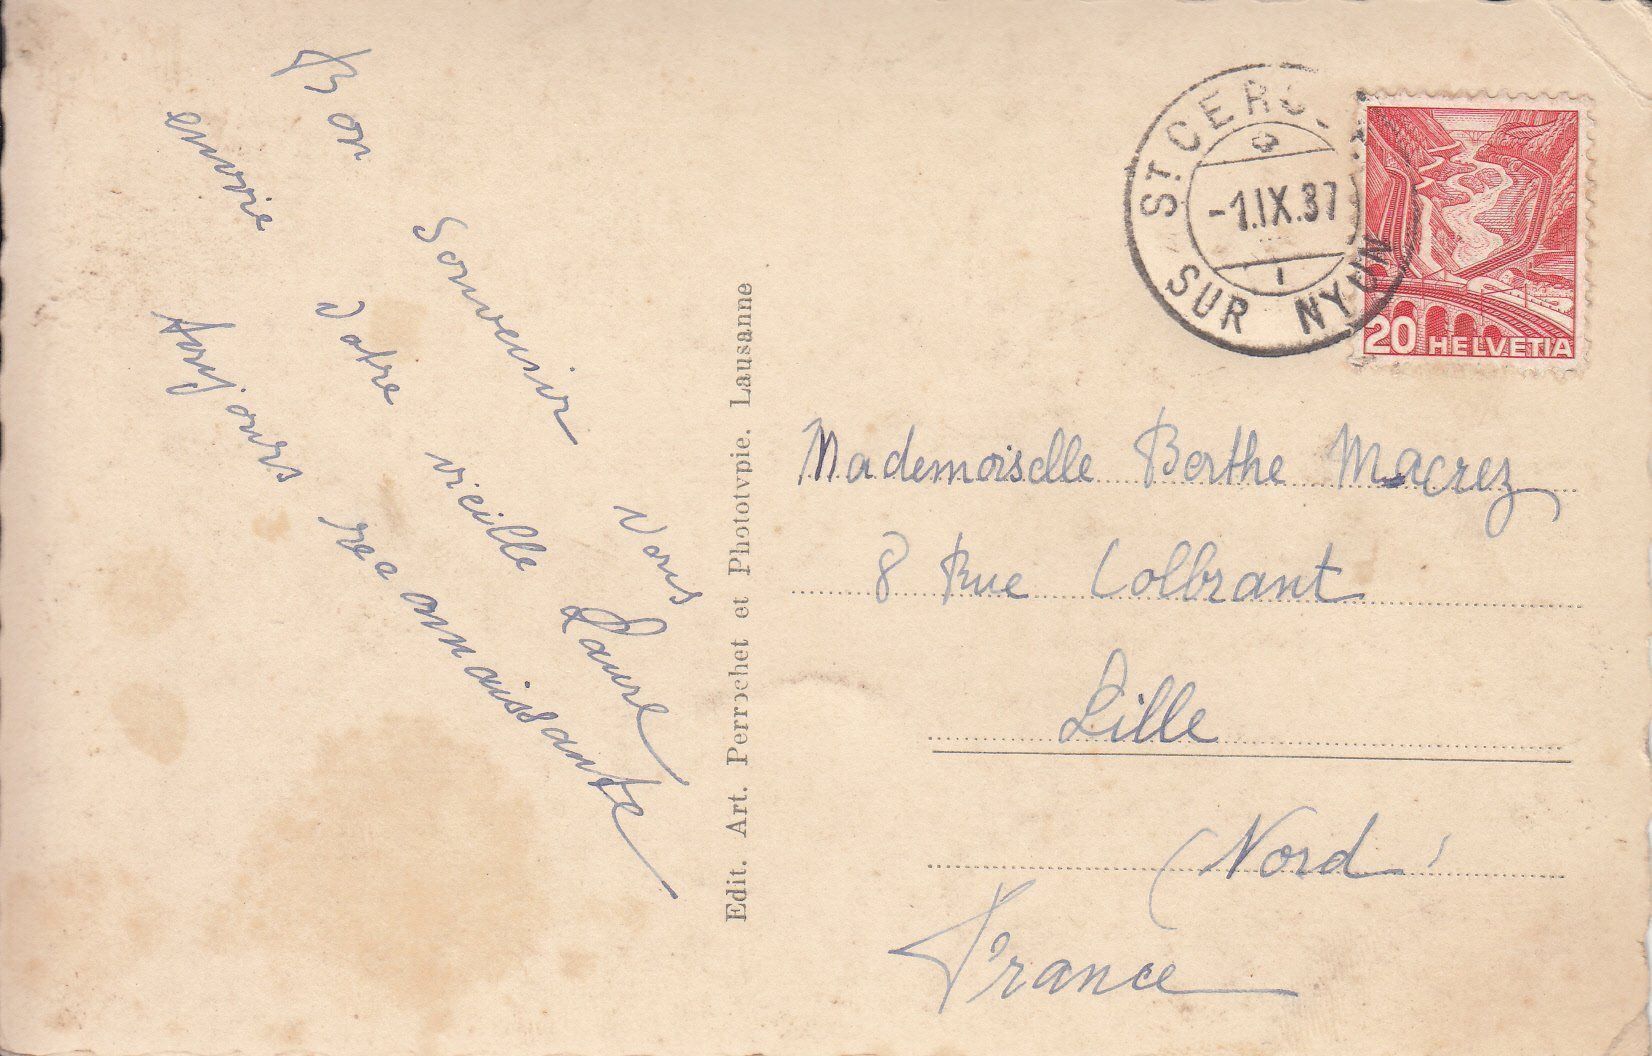 Bon Souvenir vous
envoie votre vieille Laure
toujours reconnaissante
Edit. Art. Perrochet et Phototypie. Lausanne
ST. CERGUE
-1.IX.37
SUR NYON
20 HELVETIA
Mademoiselle Berthe Macrez
8 Rue Colbrant
Lille
(Nord)
France